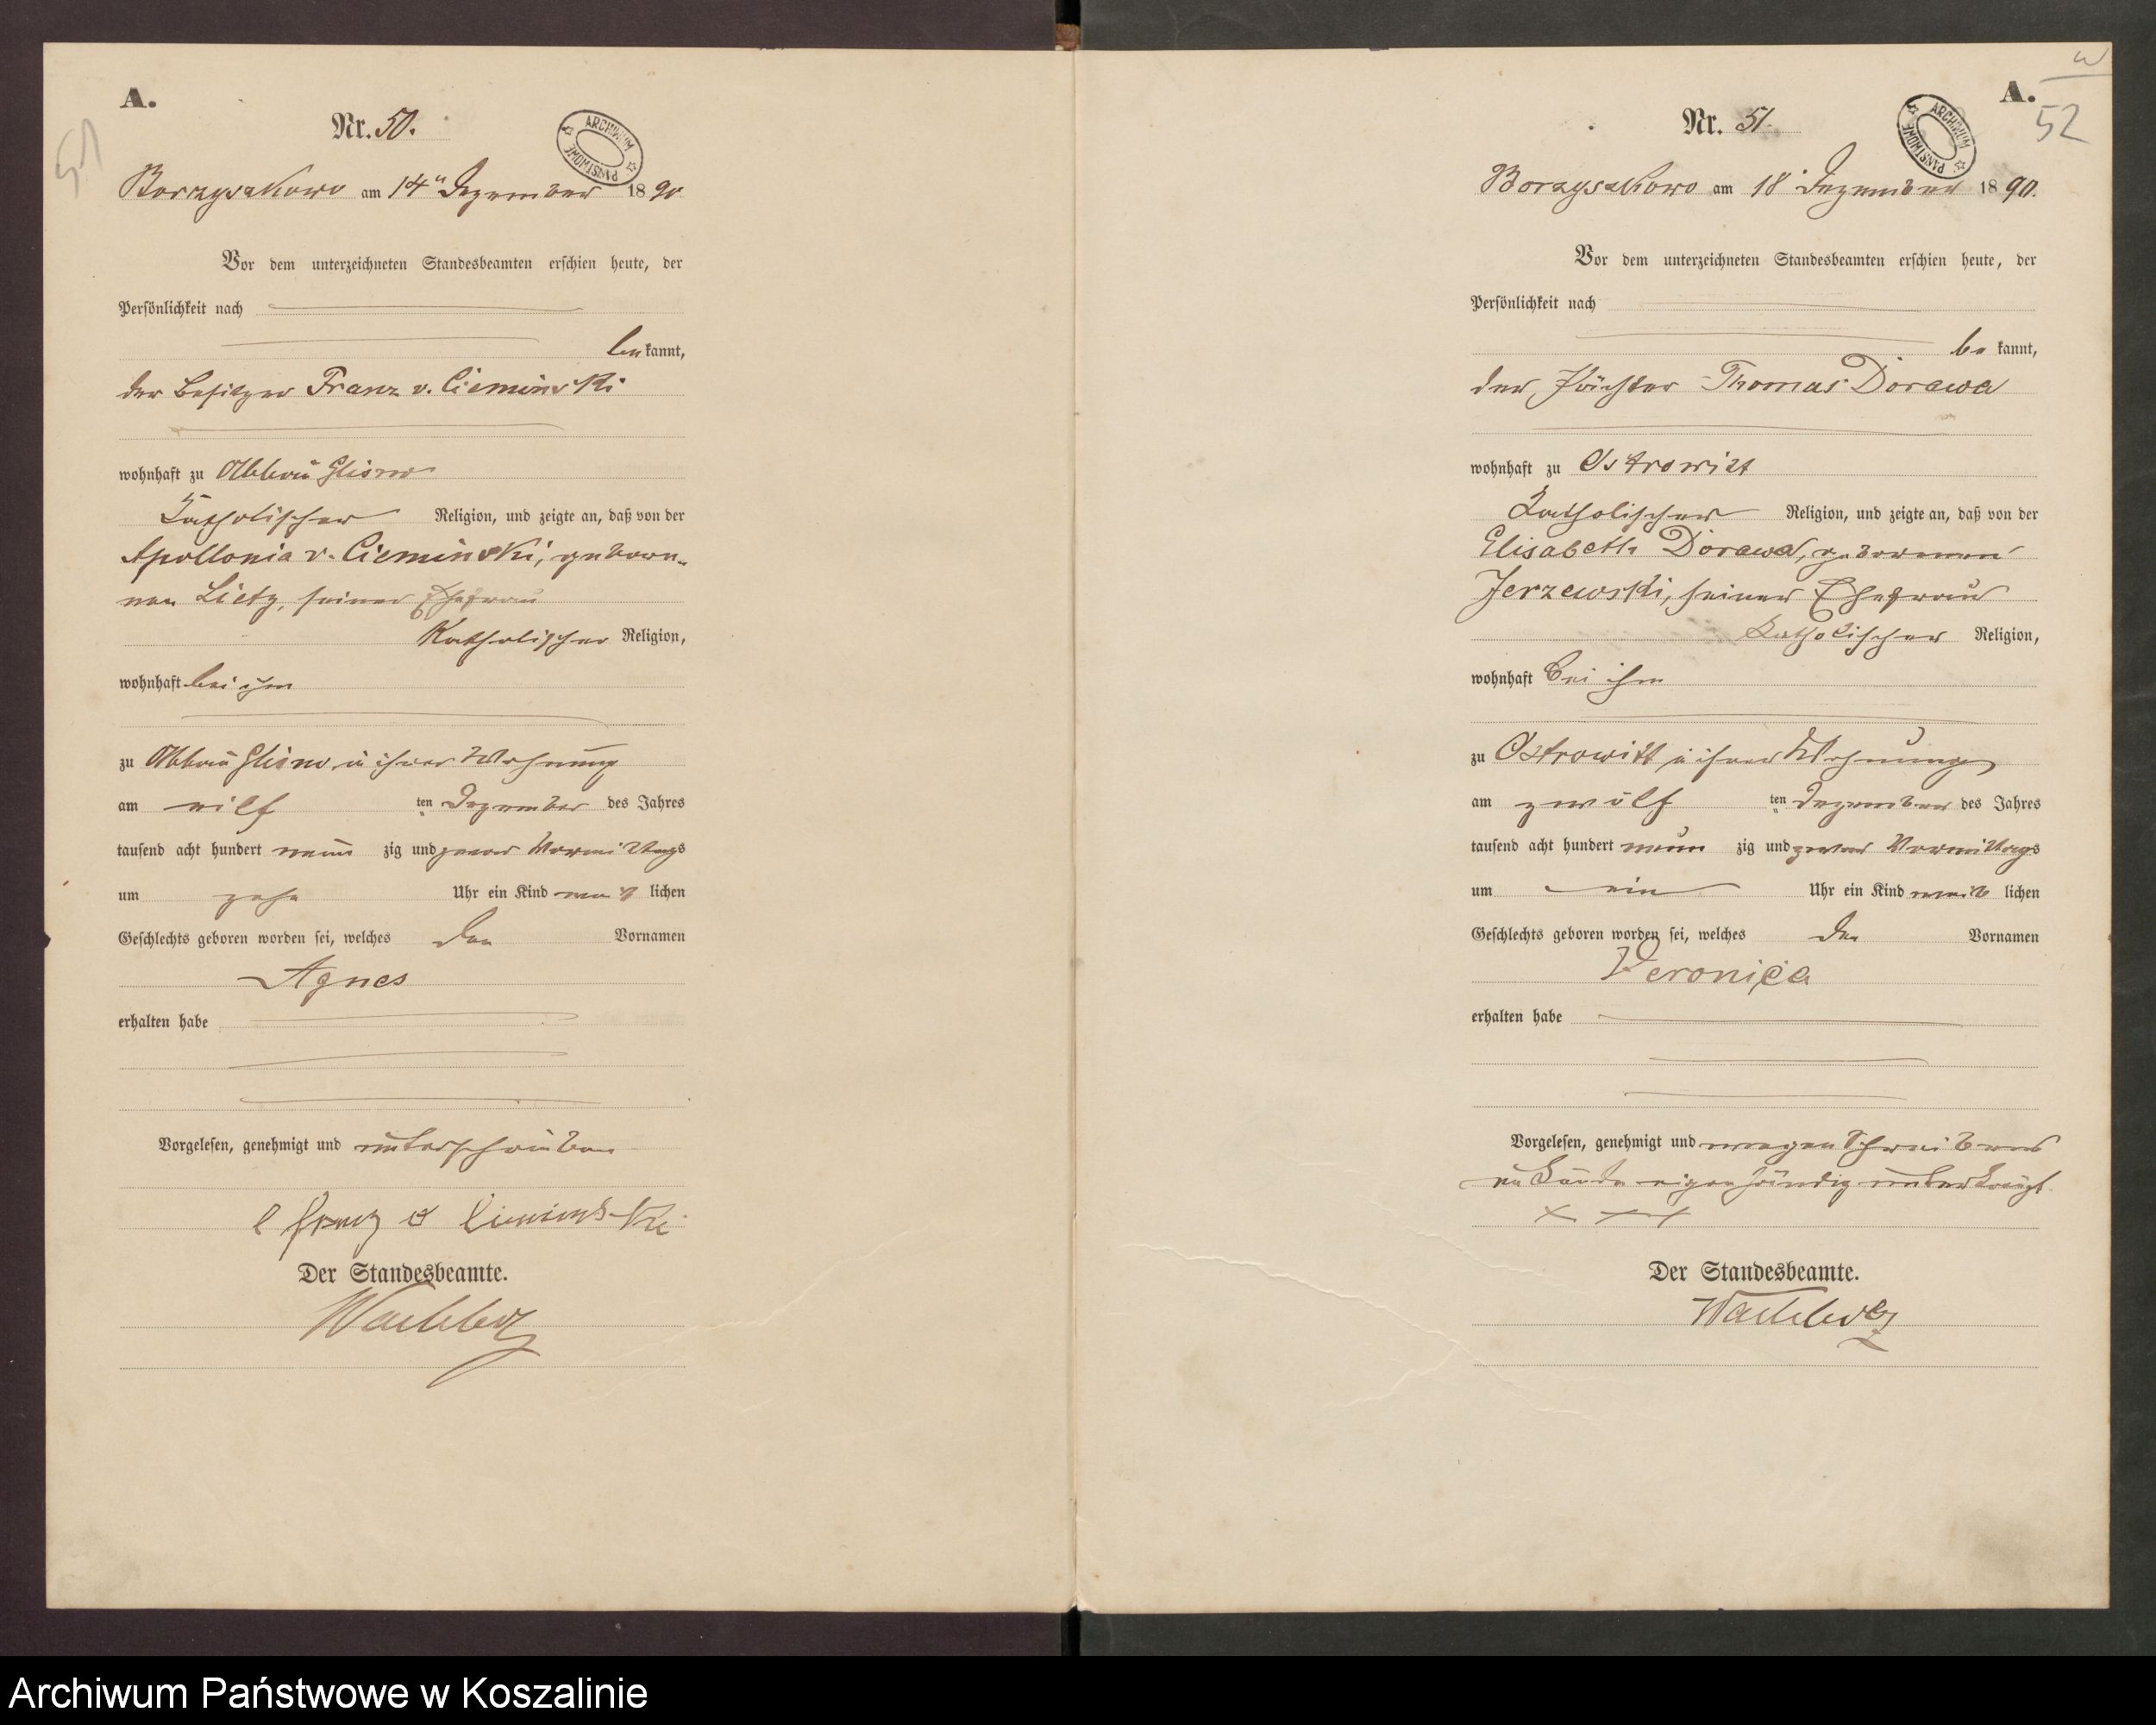 51
A.
Nr. 50.
ARCHIWUM PAŃSTWOWE
Borzyszkowo am 14ten Dezember 1890
Vor dem unterzeichneten Standesbeamten erschien heute, der
Persönlichkeit nach
bekannt,
der Besitzer Franz v. Cieminski
wohnhaft zu Abbau Glisno
katholischer Religion, und zeigte an, daß von der
Apollonia v. Cieminski, gebore-
nen Lietz, seiner Ehefrau
Katholischer Religion,
wohnhaft bei ihm
zu Abbau Glisno in ihrer Wohnung
am eilf ten Dezember des Jahres
tausend acht hundert neun zig und zwar Vormittags
um zehn Uhr ein Kind weiblichen
Geschlechts geboren worden sei, welches den Vornamen
Agnes
erhalten habe
Vorgelesen, genehmigt und unterschrieben
Franz v Cieminski
Der Standesbeamte.
52
A.
Nr. 51.
ARCHIWUM PAŃSTWOWE
Borzyszkowo am 18 Dezember 1890.
Vor dem unterzeichneten Standesbeamten erschien heute, der
Persönlichkeit nach
be kannt,
der Thomas Dorawa
wohnhaft zu Ostrowitt
Katholischer Religion, und zeigte an, daß von der
Elisabeth Dorawa, geborenen
Jerzewski, seiner Ehefrau
Katholischer Religion,
wohnhaft bei ihm
zu Ostrowitt in ihrer Wohnung
am zwölf ten Dezember des Jahres
tausend acht hundert neun zig und zwar Vormittags
um ein Uhr ein Kind weib lichen
Geschlechts geboren worden sei, welches den Vornamen
Veronica
erhalten habe
Vorgelesen, genehmigt und wegen Schreibens
unkunde eigenhändig unterkreuzt.
+ + +
Der Standesbeamte.
Archiwum Państwowe w Koszalinie